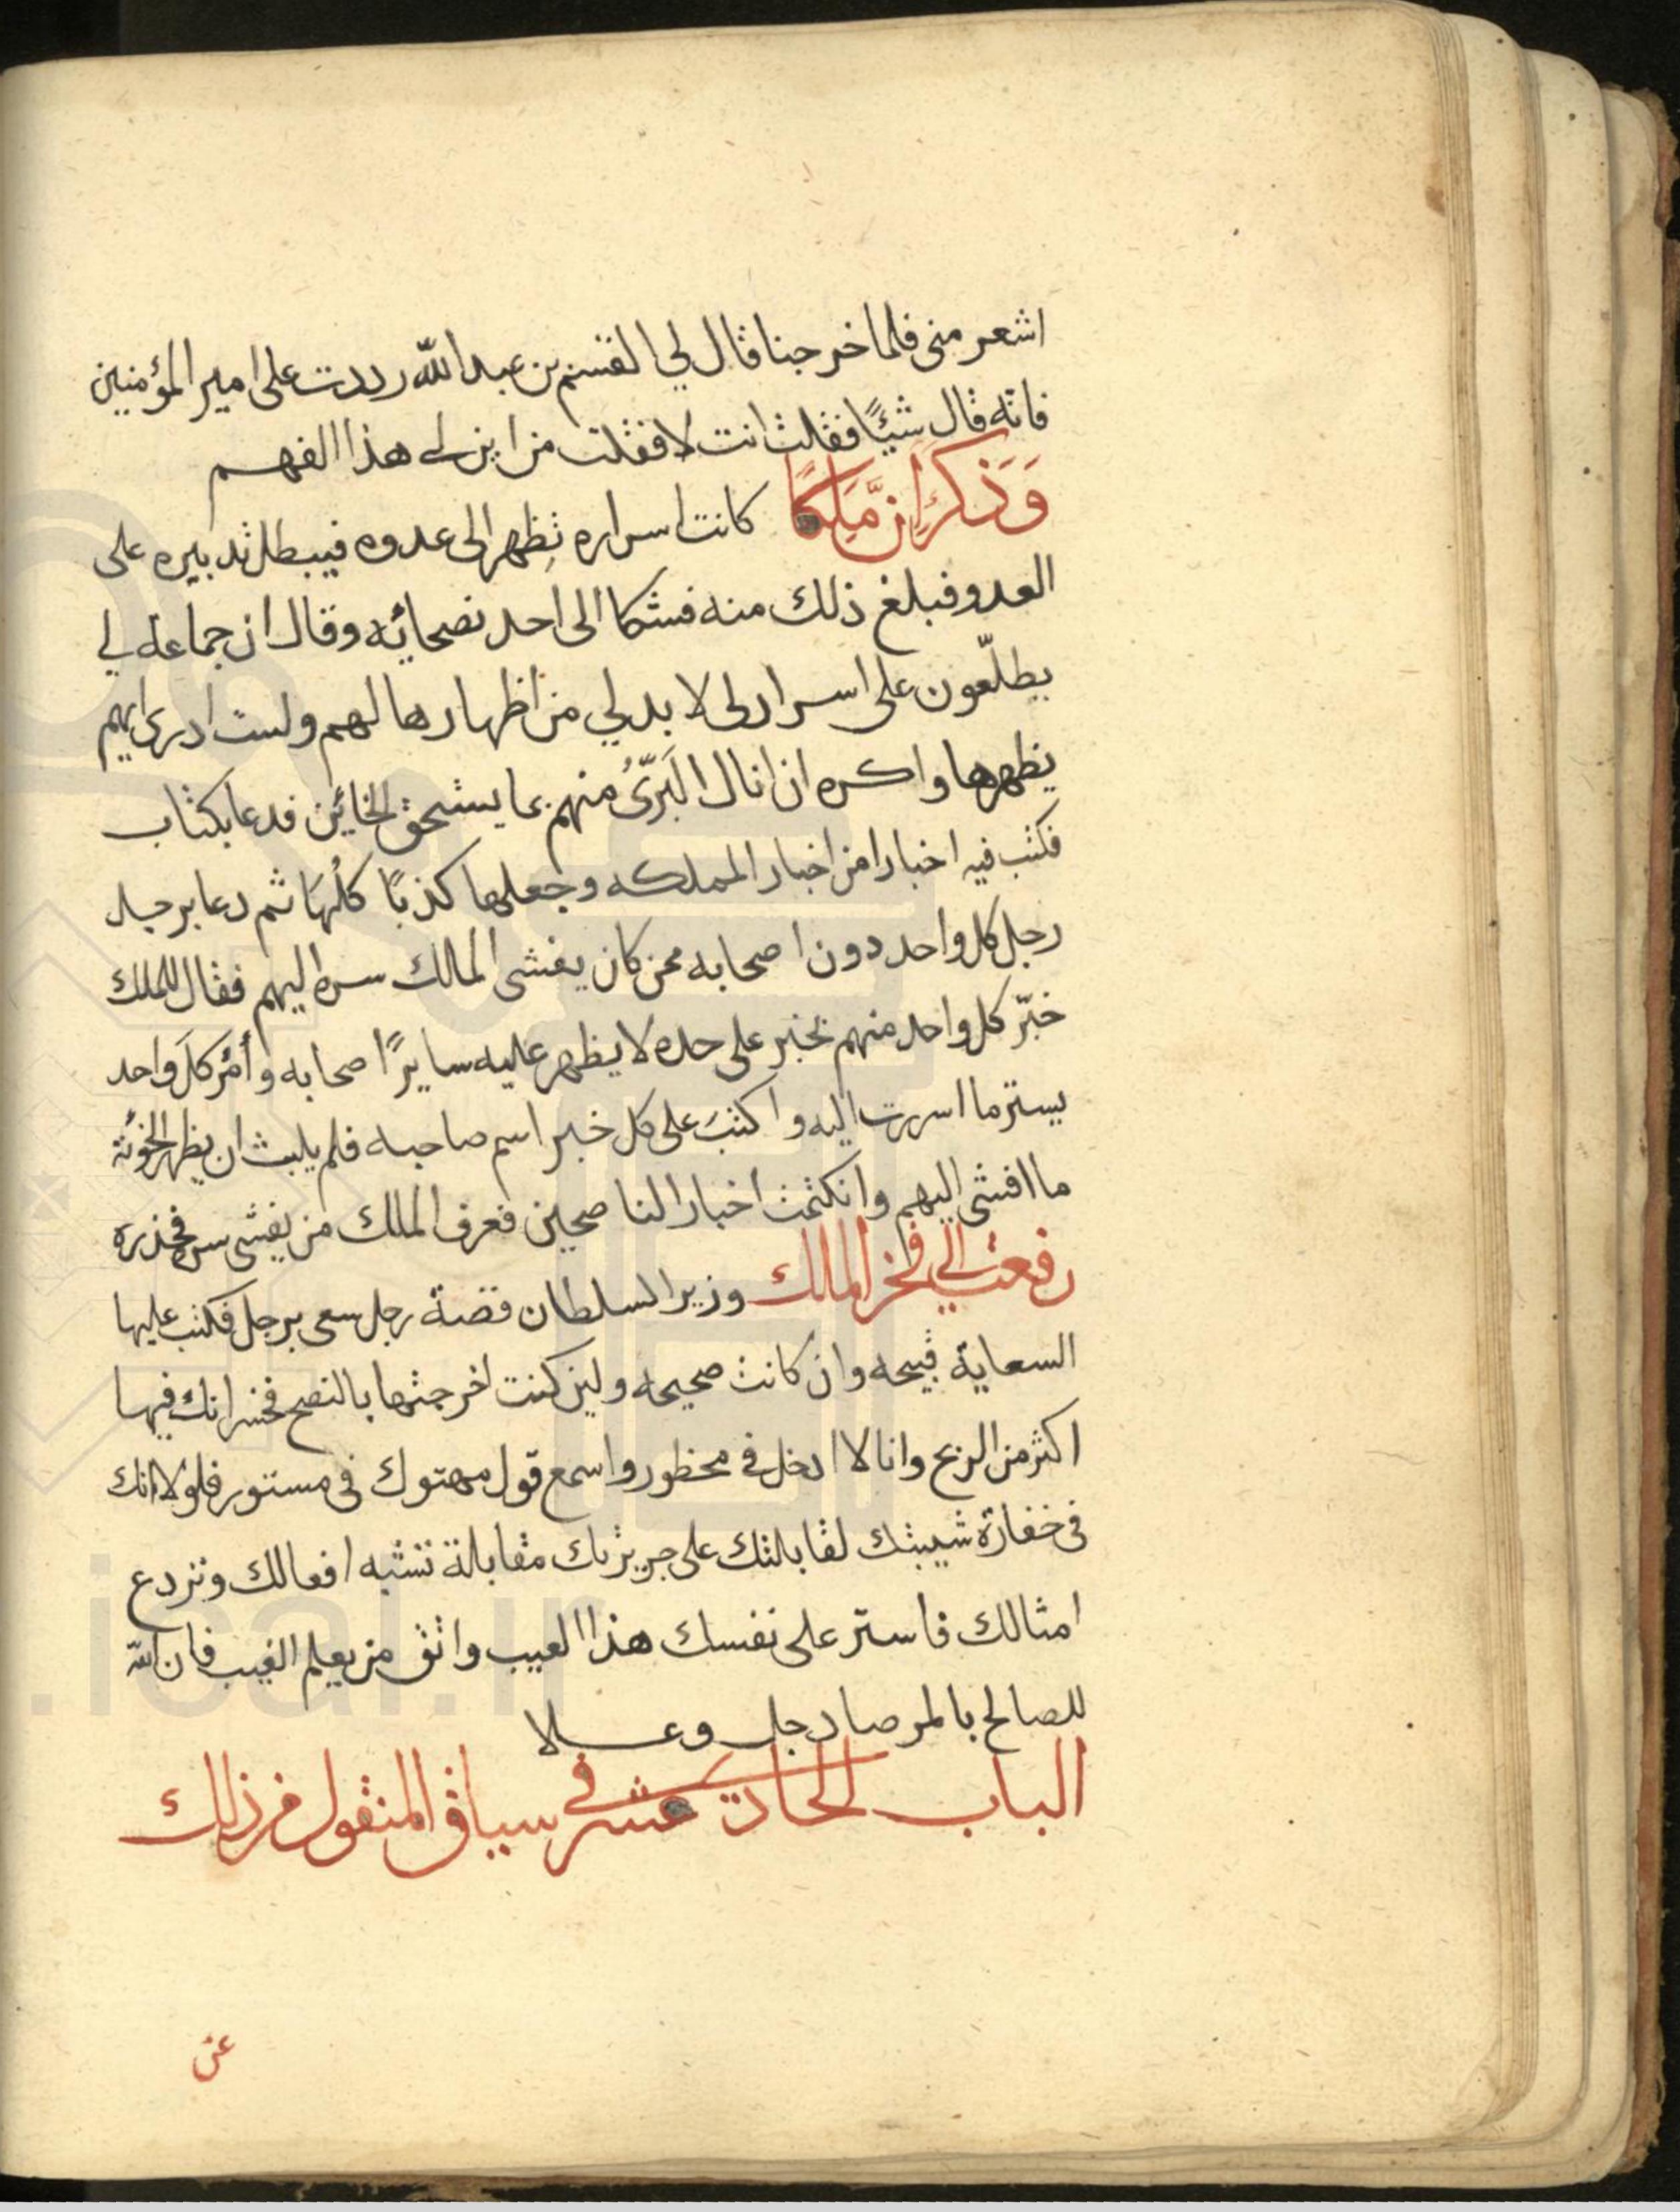 اشعر منى فلما خرجنا قال لي القسم بن عبد الله رددت على امير المؤمنين
فانه قال شيًا فقلت انت لا فقلت من اين لى هذا الفهم
وَذكرَ ان مَّلِكًا كانت اسراره تظهر الى عدوه فيبطل تدبيره على
العدو فبلغ ذلك منه فشكا الى احد نصحائه وقال ان جماعة لي
يطلّعون على اسرار لى لا بد لي من اظهارها لهم ولست ادرى ايهم
يظهرها واكره ان انال البَرّئُ منهم بما يستحق الخائن فدعا بكتاب
فكتب فيه اخبارا من اخبار المملكه وجعلها كذبًا كلُهَا ثم دعا برجل
رجل كل واحد دون اصحابه ممن كان يفشى المالك سره اليهم فقال للملك
خبّر كل واحد منهم بخبر على حده لا يظهر عليه سايرًا صحابه وأمُر كلَ واحد
يستر ما اسررت اليه واكتبَ على كل خبر اسم صاحبه فلم يلبث ان يظهر الخونَة
ما افشى اليهم وانكتمت اخبار الناصحين فعرف الملك من يفشى سره فحذره
رفعت الى فخر المالك وزير السلطان قصة رجل سعى برجل فكتب عليها
السعاية قبيحه وان كانت صحيحه ولين كنت اخرجتها بالنصح فخسرانك فيها
اكثر من الربح وانا لا ادخل في محظور واسمع قول مهتوك في مستور فلولا انك
في خفارة شيبتك لقابلتك على جريرتك مقابلة تشبه افعالك وتردع
امثالك فاستر على نفسك هذا العيب واتق من يعلم الغيب فان الله
للصالح بالمرصاد جل وعلا
الباب الحادى عشر في سياق المنقول من ذلك
عن